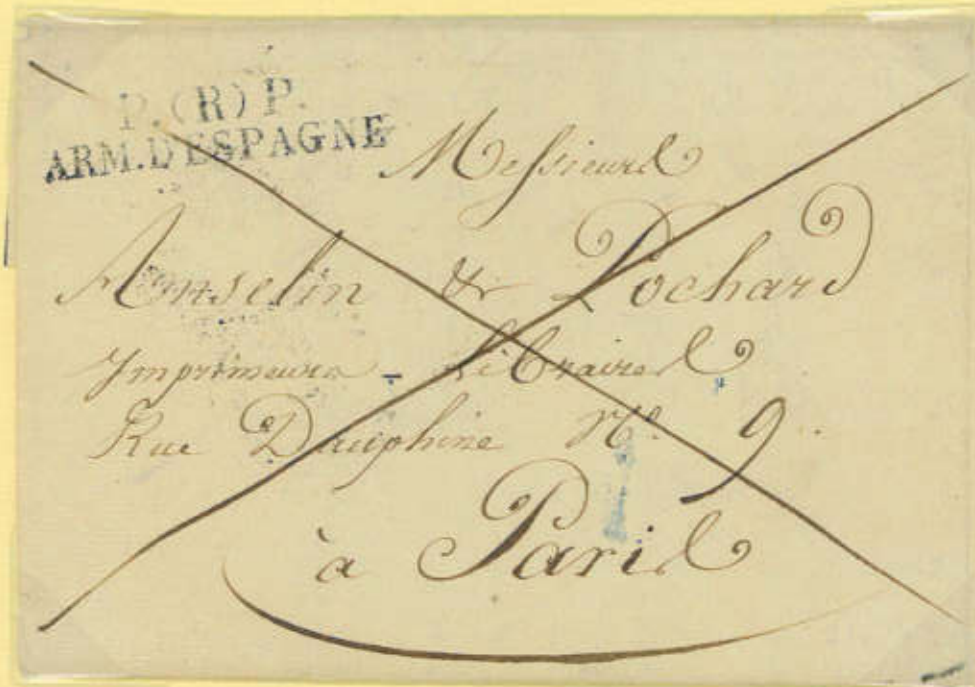 P. (R) P.
ARM. D'ESPAGNE
Messieurs
Anselin & Pochard
Imprimeurs - Libraires
Rue Dauphine N.º 9.
à Paris